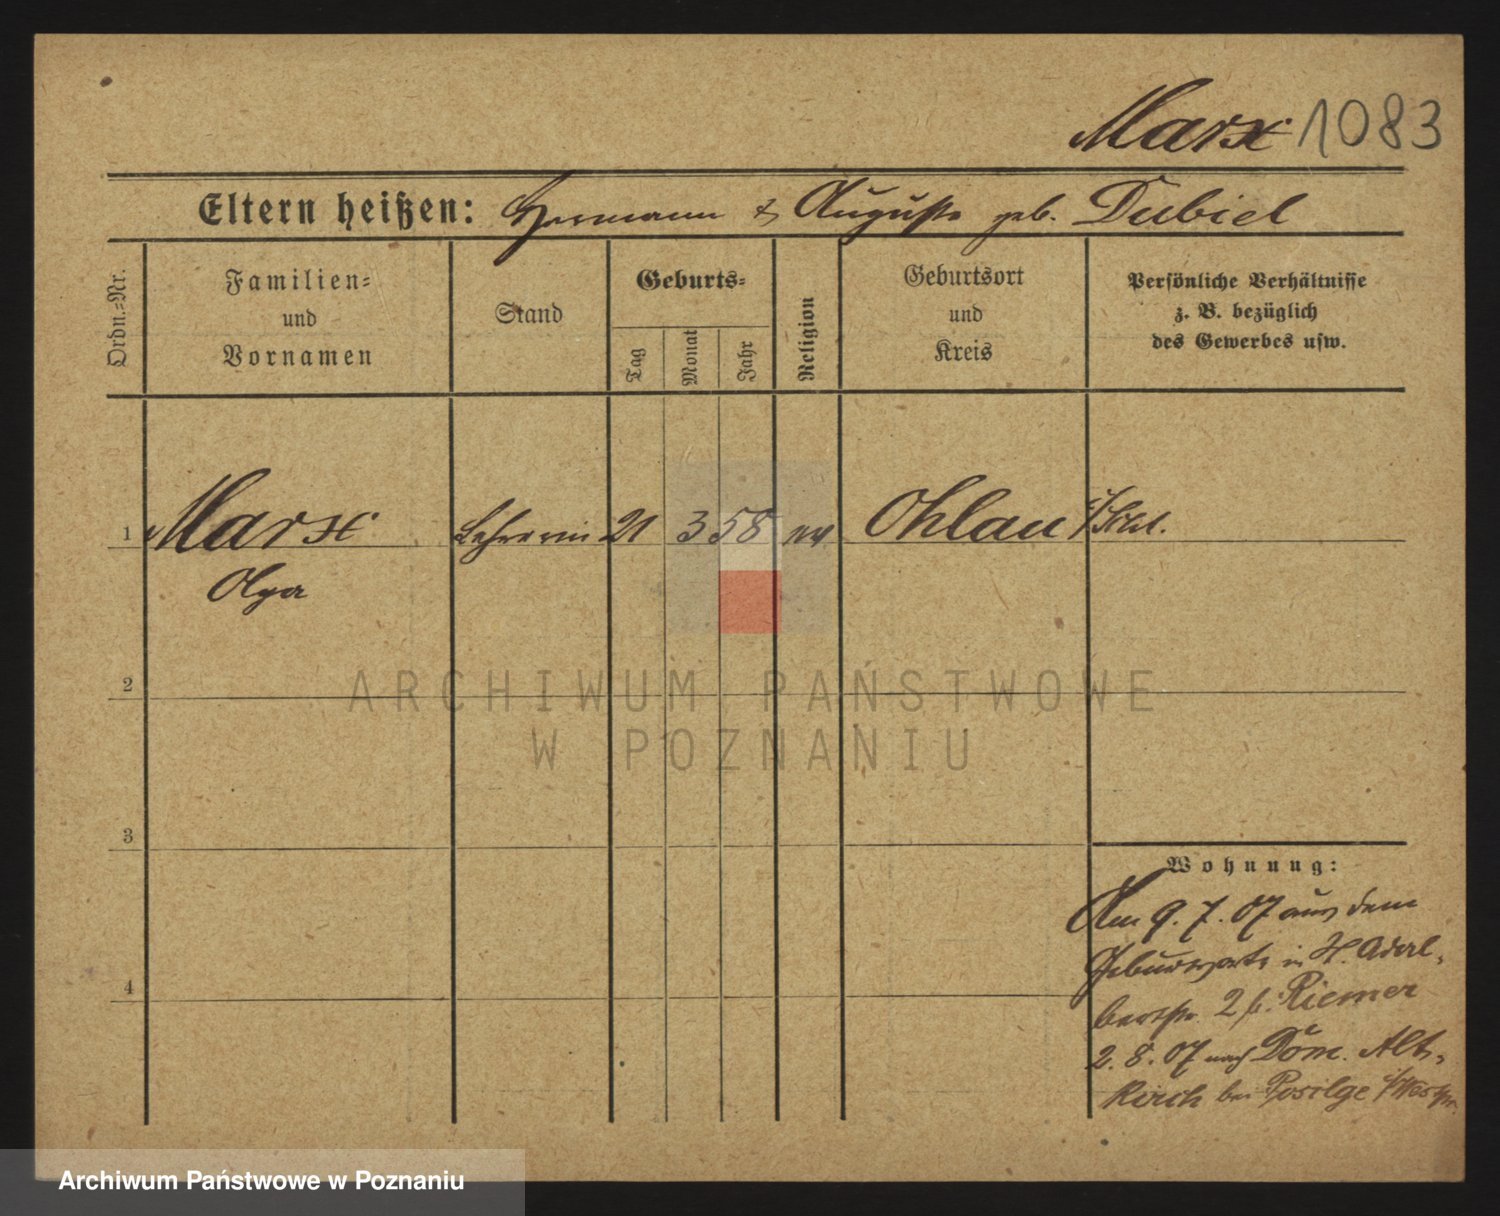 Marx 1083
Eltern heißen: Hermann & Auguste geb. Dubiel
Ordn.=Nr.
Familien=
und
Vornamen
Stand
Geburts=
Tag
Monat
Jahr
Religion
Geburtsort
und
Kreis
Persönliche Verhältnisse
z. B. bezüglich
des Gewerbes usw.
1 Marx Lehrerin 21 3 58 ev Ohlau i/Schl.
Olga
2
ARCHIWUM PAŃSTWOWE
W POZNANIU
3
Wohnung:
Am 9. 7. 07 aus dem
Geburtsorte in H. Adal-
bertstr. 2 b. Riemer
2. 8. 07 nach Dom. Alt-
kirch bei Posilge i/Westpr.
4
Archiwum Państwowe w Poznaniu